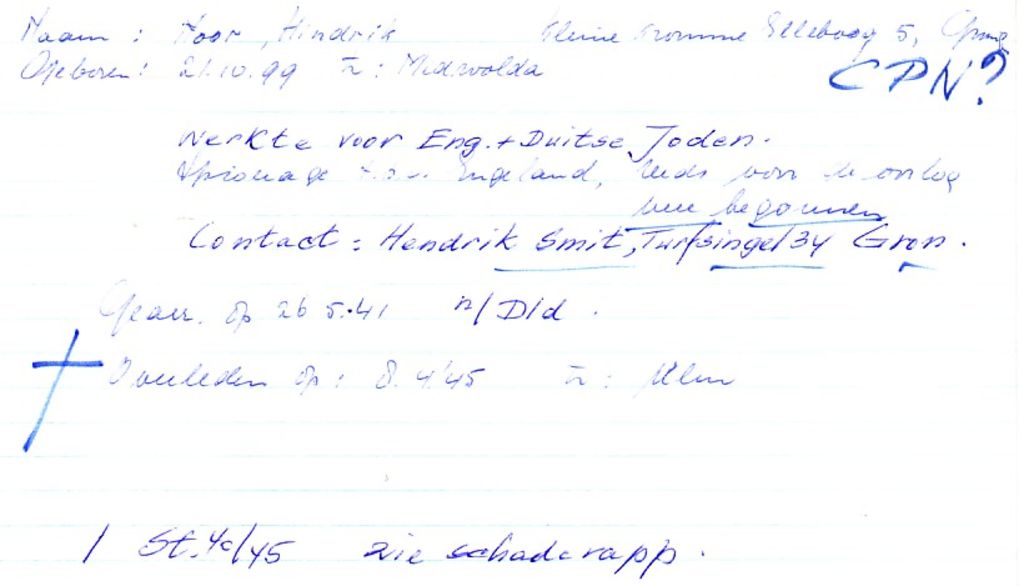 Naam : Moor, Hindrik Kleine Kromme Elleboog 5, Gron.
Geboren : 21.10.99 te : Midwolda
CPN?
Werkte voor Eng. + Duitse Joden.
Spionage t.b.v. Engeland, reeds voor de oorlog
mee begonnen
Contact : Hendrik Smit, Turfsingel 34 Gron.
Gearr. op 26 5.41 n/ Dld.
Overleden op : 8.4.45 te : Ulm
/ St. 4c/45 zie schaderapp.